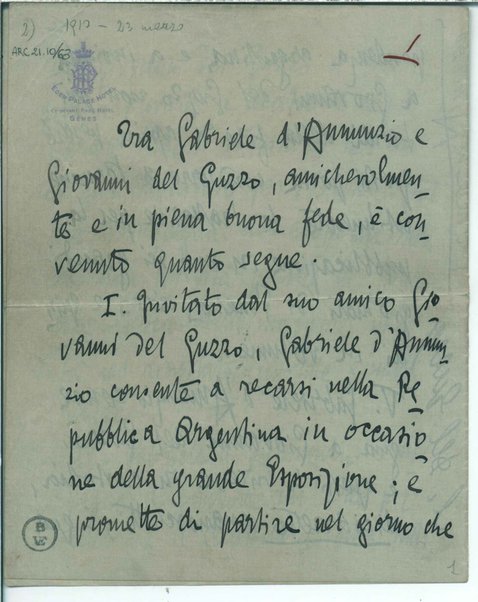 2) 1910 - 23 marzo
ARC.21.10/63
EDEN PALACE HOTEL
GÊNES
Tra Gabriele d'Annunzio e
Giovanni del Guzzo, amichevolmen-
te e in piena buona fede, è con-
venuto quanto segue.
I. Invitato dal suo amico Gio
vanni del Guzzo, Gabriele d'Annun-
zio consente a recarsi nella Re
pubblica Argentina in occasio
ne della grande Esposizione; e
promette di partire nel giorno che
B
VE
1